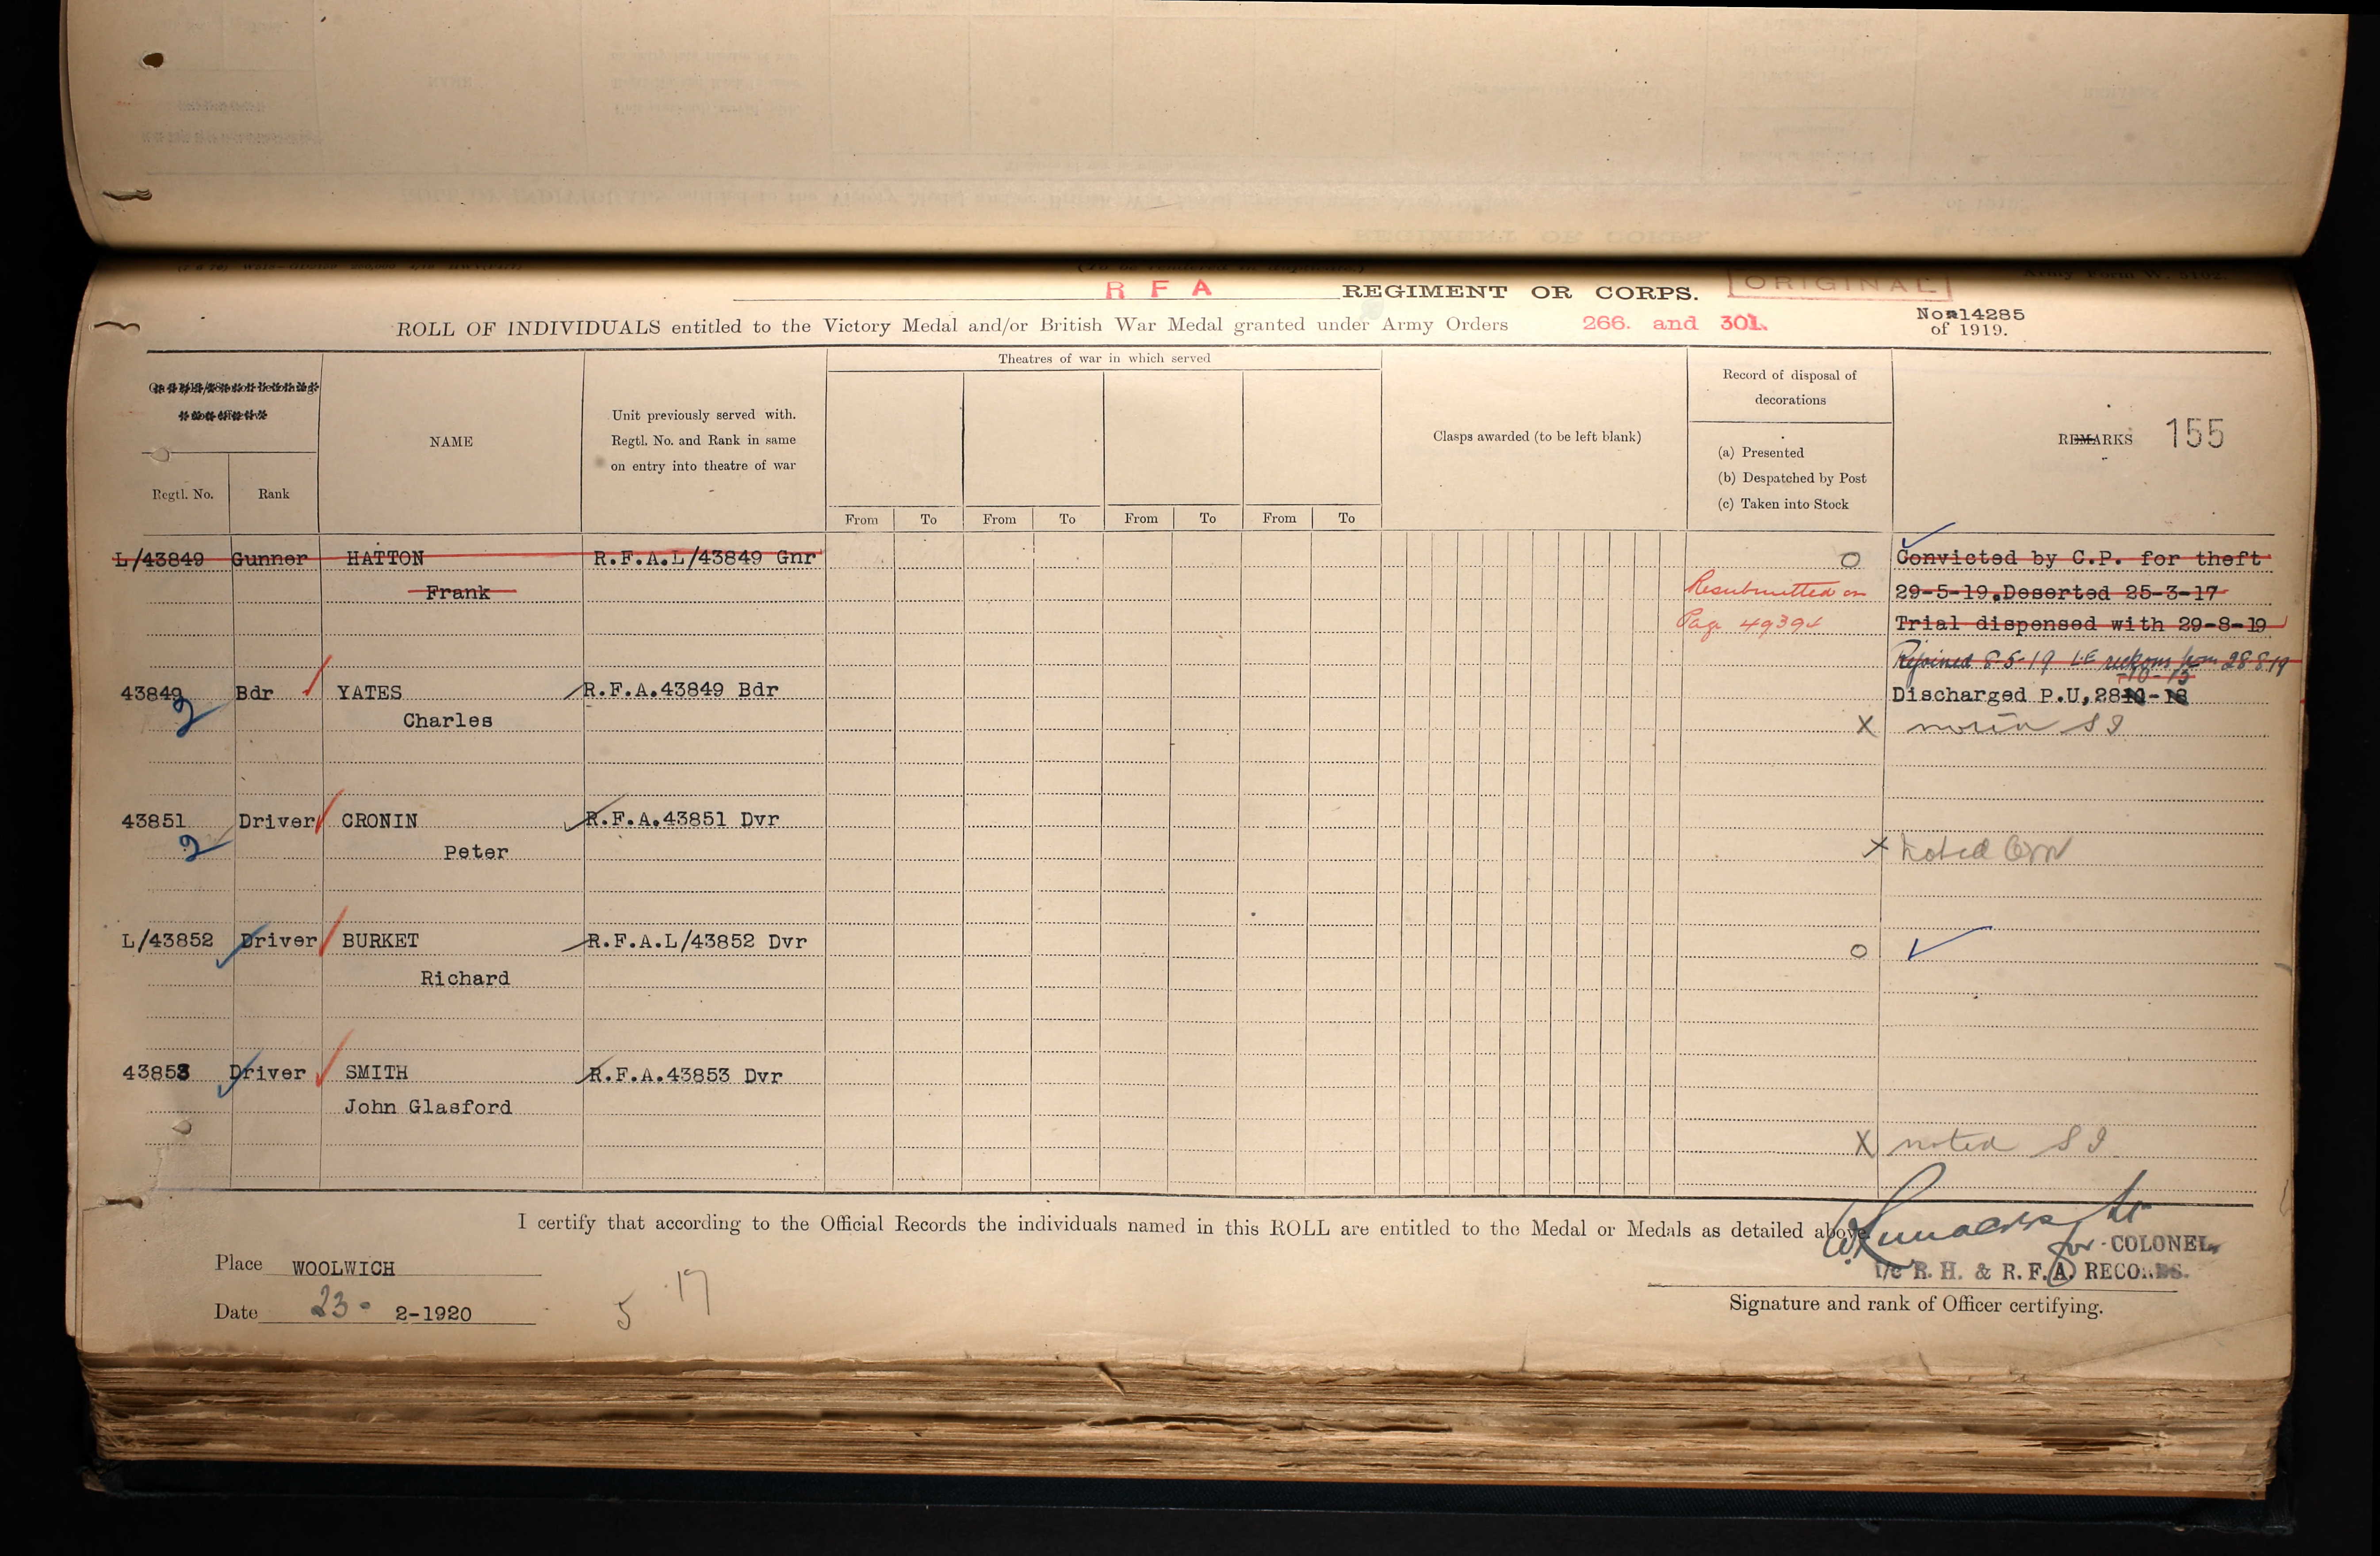 R F A REGIMENT OR CORPS. ORIGINAL
ROLL OF INDIVIDUALS entitled to the Victory Medal and/or British War Medal granted under Army Orders 266. and 301. No 14285
of 1919.
Theatres of war in which served
Record of disposal of
decorations
Unit previously served with.
Regtl. No. and Rank in same
on entry into theatre of war
NAME
Clasps awarded (to be left blank)
REMARKS 155
(a) Presented
(b) Despatched by Post
(c) Taken into Stock
Regtl. No. Rank
From To From To From To From To
L/43849 Gunner HATTON R.F.A.L/43849 Gnr O Convicted by C.P. for theft
Frank Resubmitted on 29-5-19.Deserted 25-3-17
Page 49394 Trial dispensed with 29-8-19
Rejoined 8-5-19 reckons from 28.8.19
43849 Bdr YATES R.F.A.43849 Bdr Discharged P.U,28
2 Charles X S I
43851 Driver CRONIN R.F.A.43851 Dvr
2 Peter X Noted
L/43852 Driver BURKET R.F.A.L/43852 Dvr O
Richard
43853 Driver SMITH R.F.A.43853 Dvr
John Glasford
X noted S I
I certify that according to the Official Records the individuals named in this ROLL are entitled to the Medal or Medals as detailed above.
for COLONEL
Place WOOLWICH
i/c R. H. & R. F. A. RECORDS.
Date 23- 2-1920
5 17
Signature and rank of Officer certifying.